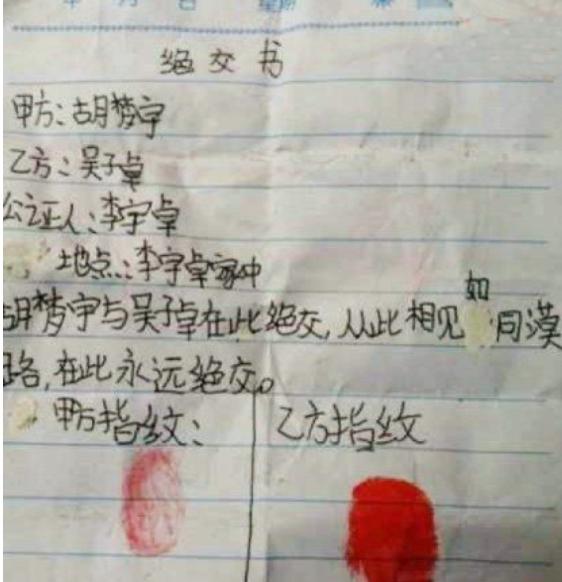 绝交书
甲方：胡梦宇
乙方：吴子卓
公证人：李宇卓
地点：李宇卓家中
胡梦宇与吴子卓在此绝交，从此相见如同漠
路，在此永远绝交。
甲方指纹： 乙方指纹